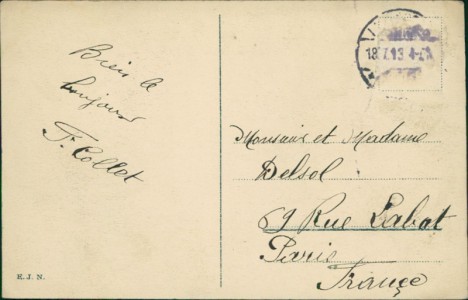 Bien le
bonjour
F. Collot
18. 7. 13. 4-
Monsieur et Madame
Delsol
69 Rue Labat
Paris
France
E. J. N.